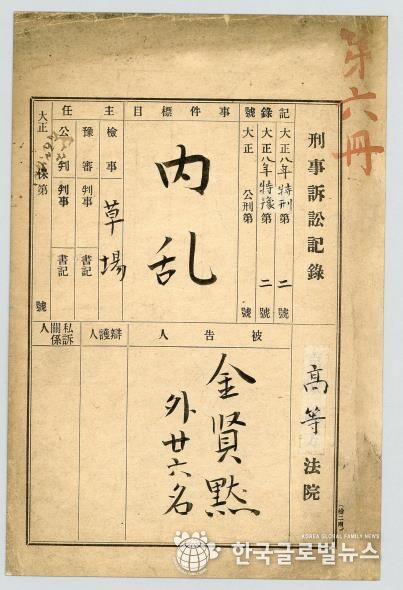 第六冊
刑事訴訟記錄
高等法院
記錄號
大正八年特刑第二號
大正八年特豫第二號
大正 公刑第 號
事件標目
内乱
主任
檢事 草場
豫審 判事 書記
公判 判事 書記
大正 保第 號
被告人
金賢黙
外廿六名
辯護人
私訴關係人
KOREA GLOBAL FAMILY NEWS
한국글로벌뉴스